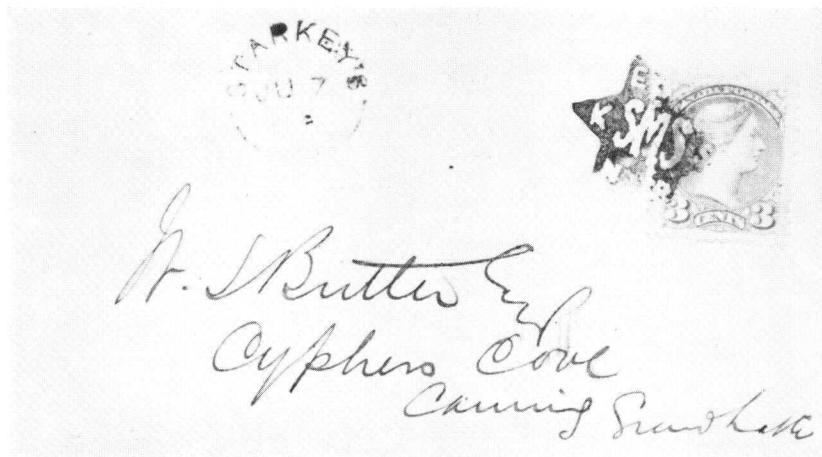 STARKEY'S
JU 7
SMS
3 3
W. S Butler Esq
Cyphers Cove
Canning Grand Lake